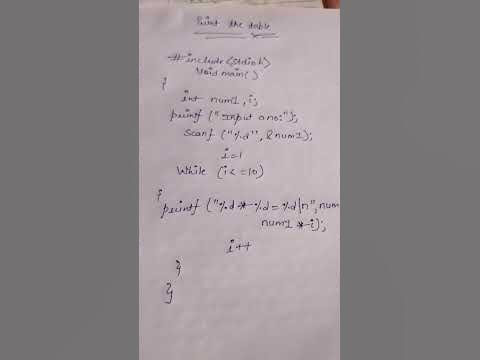 Print the table
#include(stdio.h)
Void main()
{
int num1, i;
printf ("Input a no:");
Scanf ("%d", &num1);
i=1
While (i<=10)
{
printf ("%d*%d=%d\n", num
num1*i);
i++
}
}